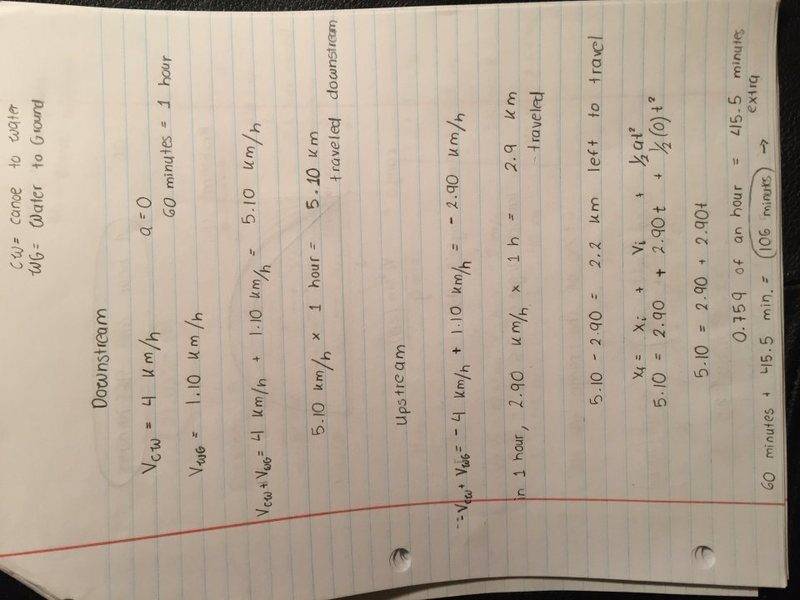 CW = canoe to water
WG = Water to Ground
Downstream
Vcw = 4 km/h a = 0
60 minutes = 1 hour
VWG = 1.10 km/h
Vcw + VWG = 4 km/h + 1.10 km/h = 5.10 km/h
5.10 km/h x 1 hour = 5.10 km
traveled downstream
Upstream
-Vcw + VWG = - 4 km/h + 1.10 km/h = - 2.90 km/h
in 1 hour, 2.90 km/h x 1 h = 2.9 km
traveled
5.10 - 2.90 = 2.2 km left to travel
xf = xi + Vi + ½at²
5.10 = 2.90 + 2.90t + ½(0)t²
5.10 = 2.90 + 2.90t
0.759 of an hour = 45.5 minutes
extra
60 minutes + 45.5 min. = 106 minutes →